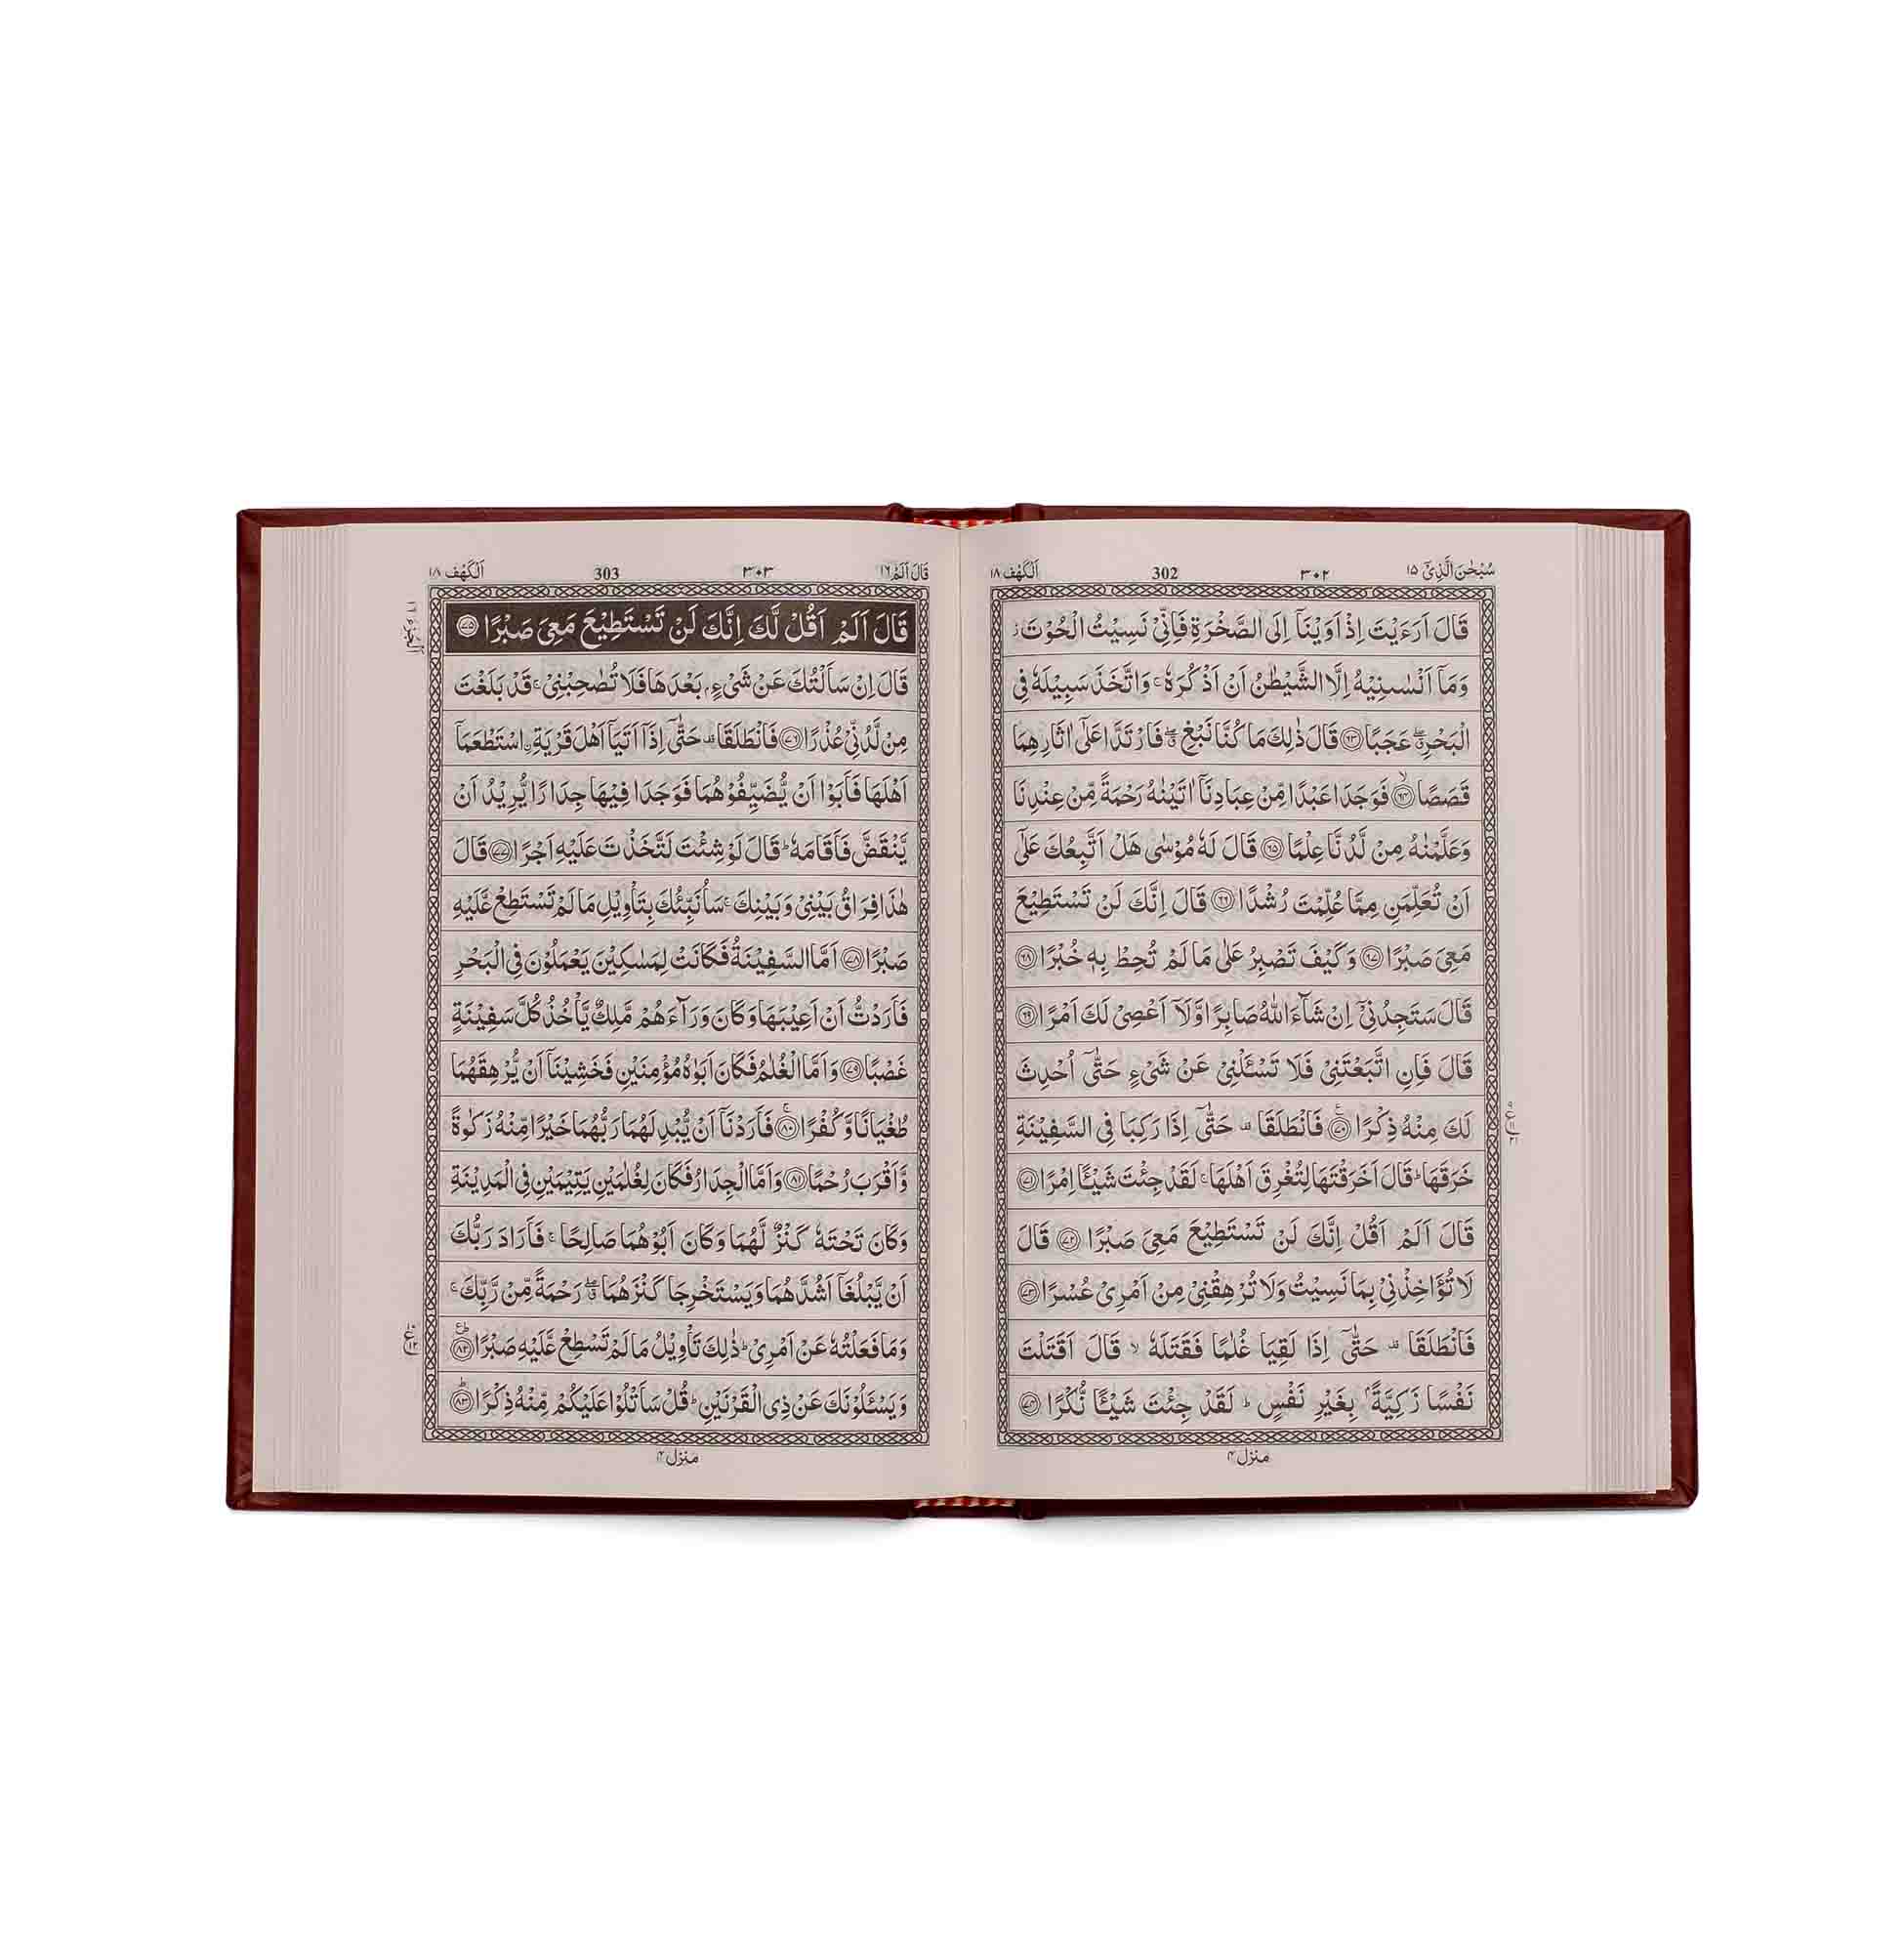 سُبْحٰنَ الَّذِیْۤ ۱۵ ۳۰۲ 302 اَلْكَهْف ۱۸
قَالَ اَرَءَیْتَ اِذْ اَوَیْنَاۤ اِلَى الصَّخْرَةِ فَاِنِّیْ نَسِیْتُ الْحُوْتَ ؗ
وَمَاۤ اَنْسٰىنِیْهُ اِلَّا الشَّیْطٰنُ اَنْ اَذْكُرَهٗ ۚ وَاتَّخَذَ سَبِیْلَهٗ فِی
الْبَحْرِ ۖۗ عَجَبًا ۝۶۳ قَالَ ذٰلِكَ مَا كُنَّا نَبْغِ ۖۗ فَارْتَدَّا عَلٰۤى اٰثَارِهِمَا
قَصَصًا ۙ۝۶۴ فَوَجَدَا عَبْدًا مِّنْ عِبَادِنَاۤ اٰتَیْنٰهُ رَحْمَةً مِّنْ عِنْدِنَا
وَعَلَّمْنٰهُ مِنْ لَّدُنَّا عِلْمًا ۝۶۵ قَالَ لَهٗ مُوْسٰى هَلْ اَتَّبِعُكَ عَلٰۤى
اَنْ تُعَلِّمَنِ مِمَّا عُلِّمْتَ رُشْدًا ۝۶۶ قَالَ اِنَّكَ لَنْ تَسْتَطِیْعَ
مَعِیَ صَبْرًا ۝۶۷ وَكَیْفَ تَصْبِرُ عَلٰى مَا لَمْ تُحِطْ بِهٖ خُبْرًا ۝۶۸
قَالَ سَتَجِدُنِیْۤ اِنْ شَآءَ اللّٰهُ صَابِرًا وَّلَاۤ اَعْصِیْ لَكَ اَمْرًا ۝۶۹
قَالَ فَاِنِ اتَّبَعْتَنِیْ فَلَا تَسْـَٔلْنِیْ عَنْ شَیْءٍ حَتّٰۤى اُحْدِثَ
لَكَ مِنْهُ ذِكْرًا ۝۷۰ فَانْطَلَقَا ۥ حَتّٰۤى اِذَا رَكِبَا فِی السَّفِیْنَةِ
خَرَقَهَا ؕ قَالَ اَخَرَقْتَهَا لِتُغْرِقَ اَهْلَهَا ۚ لَقَدْ جِئْتَ شَیْـًٔا اِمْرًا ۝۷۱
قَالَ اَلَمْ اَقُلْ اِنَّكَ لَنْ تَسْتَطِیْعَ مَعِیَ صَبْرًا ۝۷۲ قَالَ
لَا تُؤَاخِذْنِیْ بِمَا نَسِیْتُ وَلَا تُرْهِقْنِیْ مِنْ اَمْرِیْ عُسْرًا ۝۷۳
فَانْطَلَقَا ۥ حَتّٰۤى اِذَا لَقِیَا غُلٰمًا فَقَتَلَهٗ ۙ قَالَ اَقَتَلْتَ
نَفْسًا زَكِیَّةًۢ بِغَیْرِ نَفْسٍ ؕ لَقَدْ جِئْتَ شَیْـًٔا نُّكْرًا ۝۷۴
منزل ۴
قَالَ اَلَمْ ۱۶ ۳۰۳ 303 اَلْكَهْف ۱۸
الجزء ۱۶
قَالَ اَلَمْ اَقُلْ لَّكَ اِنَّكَ لَنْ تَسْتَطِیْعَ مَعِیَ صَبْرًا ۝۷۵
قَالَ اِنْ سَاَلْتُكَ عَنْ شَیْءٍۭ بَعْدَهَا فَلَا تُصٰحِبْنِیْ ۚ قَدْ بَلَغْتَ
مِنْ لَّدُنِّیْ عُذْرًا ۝۷۶ فَانْطَلَقَا ۥ حَتّٰۤى اِذَاۤ اَتَیَاۤ اَهْلَ قَرْیَةِ ِ۟اسْتَطْعَمَاۤ
اَهْلَهَا فَاَبَوْا اَنْ یُّضَیِّفُوْهُمَا فَوَجَدَا فِیْهَا جِدَارًا یُّرِیْدُ اَنْ
یَّنْقَضَّ فَاَقَامَهٗ ؕ قَالَ لَوْ شِئْتَ لَتَّخَذْتَ عَلَیْهِ اَجْرًا ۝۷۷ قَالَ
هٰذَا فِرَاقُ بَیْنِیْ وَبَیْنِكَ ۚ سَاُنَبِّئُكَ بِتَاْوِیْلِ مَا لَمْ تَسْتَطِعْ عَّلَیْهِ
صَبْرًا ۝۷۸ اَمَّا السَّفِیْنَةُ فَكَانَتْ لِمَسٰكِیْنَ یَعْمَلُوْنَ فِی الْبَحْرِ
فَاَرَدْتُّ اَنْ اَعِیْبَهَا وَكَانَ وَرَآءَهُمْ مَّلِكٌ یَّاْخُذُ كُلَّ سَفِیْنَةٍ
غَصْبًا ۝۷۹ وَاَمَّا الْغُلٰمُ فَكَانَ اَبَوٰهُ مُؤْمِنَیْنِ فَخَشِیْنَاۤ اَنْ یُّرْهِقَهُمَا
طُغْیَانًا وَّكُفْرًا ۚ۝۸۰ فَاَرَدْنَاۤ اَنْ یُّبْدِلَهُمَا رَبُّهُمَا خَیْرًا مِّنْهُ زَكٰوةً
وَّاَقْرَبَ رُحْمًا ۝۸۱ وَاَمَّا الْجِدَارُ فَكَانَ لِغُلٰمَیْنِ یَتِیْمَیْنِ فِی الْمَدِیْنَةِ
وَكَانَ تَحْتَهٗ كَنْزٌ لَّهُمَا وَكَانَ اَبُوْهُمَا صَالِحًا ۚ فَاَرَادَ رَبُّكَ
اَنْ یَّبْلُغَاۤ اَشُدَّهُمَا وَیَسْتَخْرِجَا كَنْزَهُمَا ۖۗ رَحْمَةً مِّنْ رَّبِّكَ ۚ
وَمَا فَعَلْتُهٗ عَنْ اَمْرِیْ ؕ ذٰلِكَ تَاْوِیْلُ مَا لَمْ تَسْطِعْ عَّلَیْهِ صَبْرًا ؕ۝۸۲
وَیَسْـَٔلُوْنَكَ عَنْ ذِی الْقَرْنَیْنِ ؕ قُلْ سَاَتْلُوْا عَلَیْكُمْ مِّنْهُ ذِكْرًا ؕ۝۸۳
منزل ۴